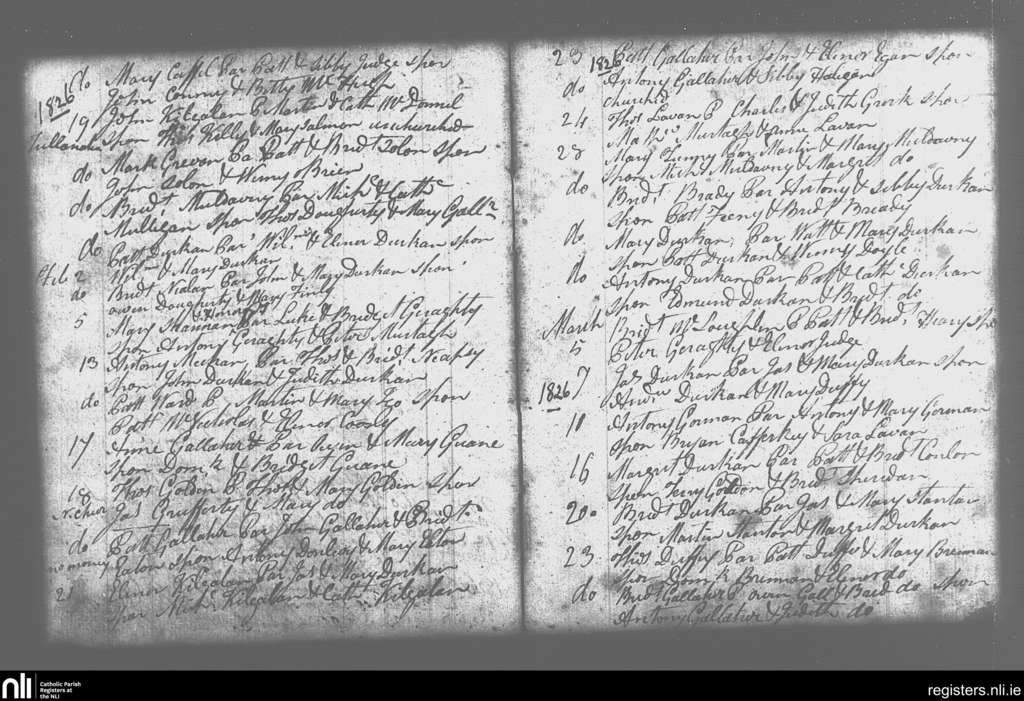 do Mary Caffel Par Patt & Sibby Judge spon
1826
John Conway & Betty Mc Hugh
19 John Kilgalan P Martin & Cath Mc Donnel
spon Thos Killy & Mary Salmon unchurched
do Mark Crevon Pa Patt & Bridt Solon spon
John Solon & Winny O Brien
do Bridt Muldavny Par Michl & Cathe
Mulligan Spon Thos Dougherty & Mary Gallr
do Patt Durkan Par Wilm & Elinor Durkan spon
Feb 2 Wilm & Mary Durkan
do Bridt Nolan Par John & Mary Durkan spon
owen Dougherty & Mary Finly
5 Mary Par Luke & Bridget Geraghty
Spon Antony Geraghty & Peter Murtagh
13 Antony Meehan Par Thos & Bridt Neapsy
spon John Durkan & Judith Durkan
do Patt Ward P Martin & Mary spon
Patt Mc Nicholas & Elinor
17 Anne Gallaher Par Ryan & Mary Guane
Spon Domk & Bridget Guane
18 Thos Golden P Thos & Mary Golden spon
Jas & Mary do
do Patt Gallaher Par John Gallaher & Bridt
no money Eaton spon Antony Donlevy & Mary Eaton
21 Elinor Kilgalan Par Jas & Mary Durkan
Spon Michl Kilgalan & Cath Kilgalan
23 1826 Patt Gallaher Par John & Elinor Egan spon
do Antony Gallaher & Sibby
churched
24 Thos Lavan P Charls & Judith spon
Murtagh & anne Lavan
28 Mary Par Martin & Mary Muldavny
Spon Michl Muldavny & Margret do
do Bridt Brady Par Antony & Sibby Durkan
Spon Patt Feeny & Bridt Bready
do Mary Durkan Par Watt & Mary Durkan
Spon Patt Durkan & Winny Doyle
do Antony Durkan Par Patt & Cath Durkan
Spon Edmund Durkan & Bridt do
March Bridt Mc Loughlin P Patt & Bridt Spo
5 Peter Geraghty & Elinor Judge
1826 7 Jas Durkan Par Jas & Mary Durkan spon
Andw Durkan & Mary Duffy
11 Antony Gorman Par Antony & Mary Gorman
Spon Bryan Cafferkey & Sara Lavan
16 Margret Durkan Par Patt & Bridt Conlon
Spon & Bridt Sheridan
20 Bridt Durkan Par Jas & Mary Stanton
Spon Martin Stanton & Margret Durkan
23 Thos Duffy Par Patt Duffy & Mary Brennan
Spon Domk Brennan & Elinor do
do Bridt Gallaher P owen Gall & Brid do spon
Antony Gallaher & Judith do
nli Catholic Parish
Registers at
the NLI
registers.nli.ie